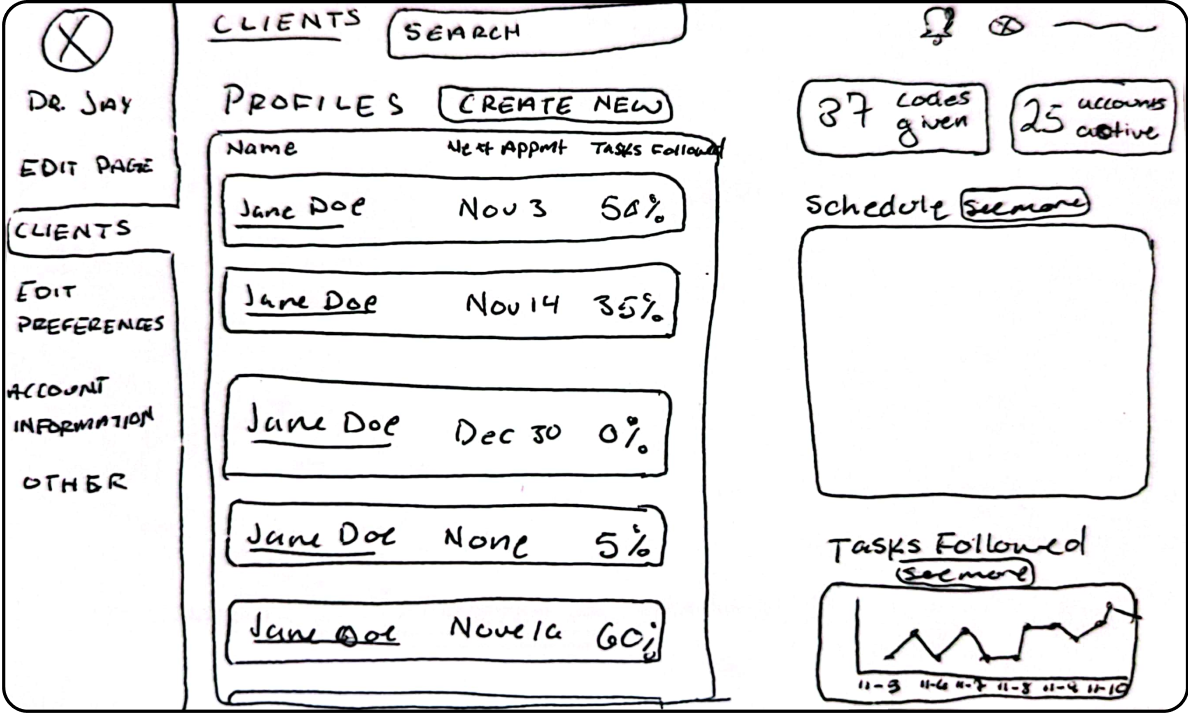 DR. JAY
EDIT PAGE
CLIENTS
EDIT
PREFERENCES
ACCOUNT
INFORMATION
OTHER
CLIENTS SEARCH
PROFILES CREATE NEW
Name Next Appmt Tasks Followed
Jane Doe Nov 3 50%
Jane Doe Nov 14 35%
Jane Doe Dec 30 0%
Jane Doe None 5%
Jane Doe 60%
37 codes
given
25 accounts
active
Schedule see more
Tasks Followed
see more
11-6 11-7 11-8 11-9 11-10